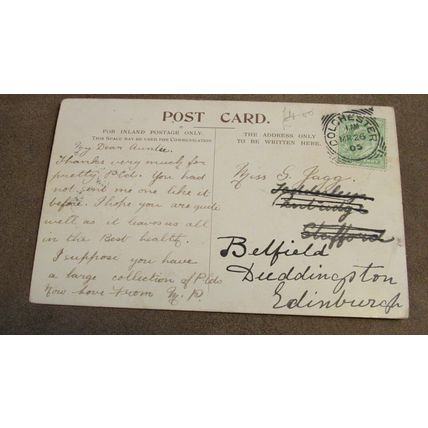 POST CARD.
£4.00
FOR INLAND POSTAGE ONLY.
THIS SPACE MAY BE USED FOR COMMUNICATION
THE ADDRESS ONLY
TO BE WRITTEN HERE.
COLCHESTER
MR 26
05
My Dear Auntie.
Thanks very much for
pretty P.Cd. You had
not send me one like it
before. I hope you are quite
well as it leaves us all
in the Best health.
I suppose you have
a large collection of P.Cds
Now love From M. P.
Miss G. Fagg.
Belfield
Duddingston
Edinburgh